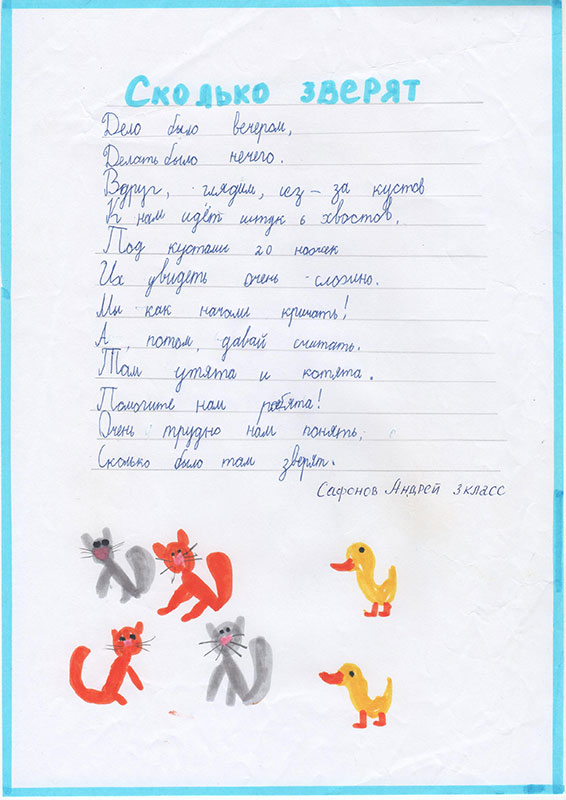 Сколько зверят
Дело было вечером,
Делать было нечего.
Вдруг, глядим, из-за кустов
К нам идёт штук 6 хвостов.
Под кустами 20 ножек
Их увидеть очень сложно.
Мы как начали кричать!
А, потом, давай считать.
Там утята и котята.
Помогите нам ребята!
Очень трудно нам понять,
Сколько было там зверят.
Сафонов Андрей 3 класс